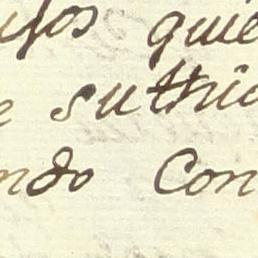 usos quie
e suthri
ndo Con